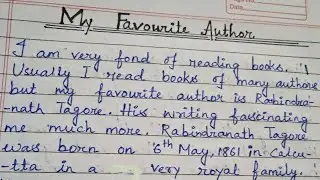 My Favourite Author
I am very fond of reading books.
Usually I read books of many authors
but my favourite author is Rabindra-
-nath Tagore. His writing fascinating
me much more. Rabindranath Tagore
was born on 6th May, 1861 in Calcu-
-tta in a very royal family.